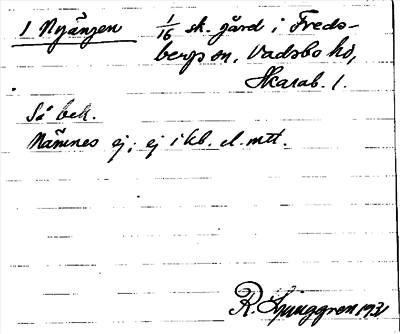 1 Nyängen 1/16 sk. gård i Freds-
bergs sn, Vadsbo hd,
Skarab. l.
Så bet.
Nämnes ej; ej i kb. el. mtl.
R. Ljunggren 1931